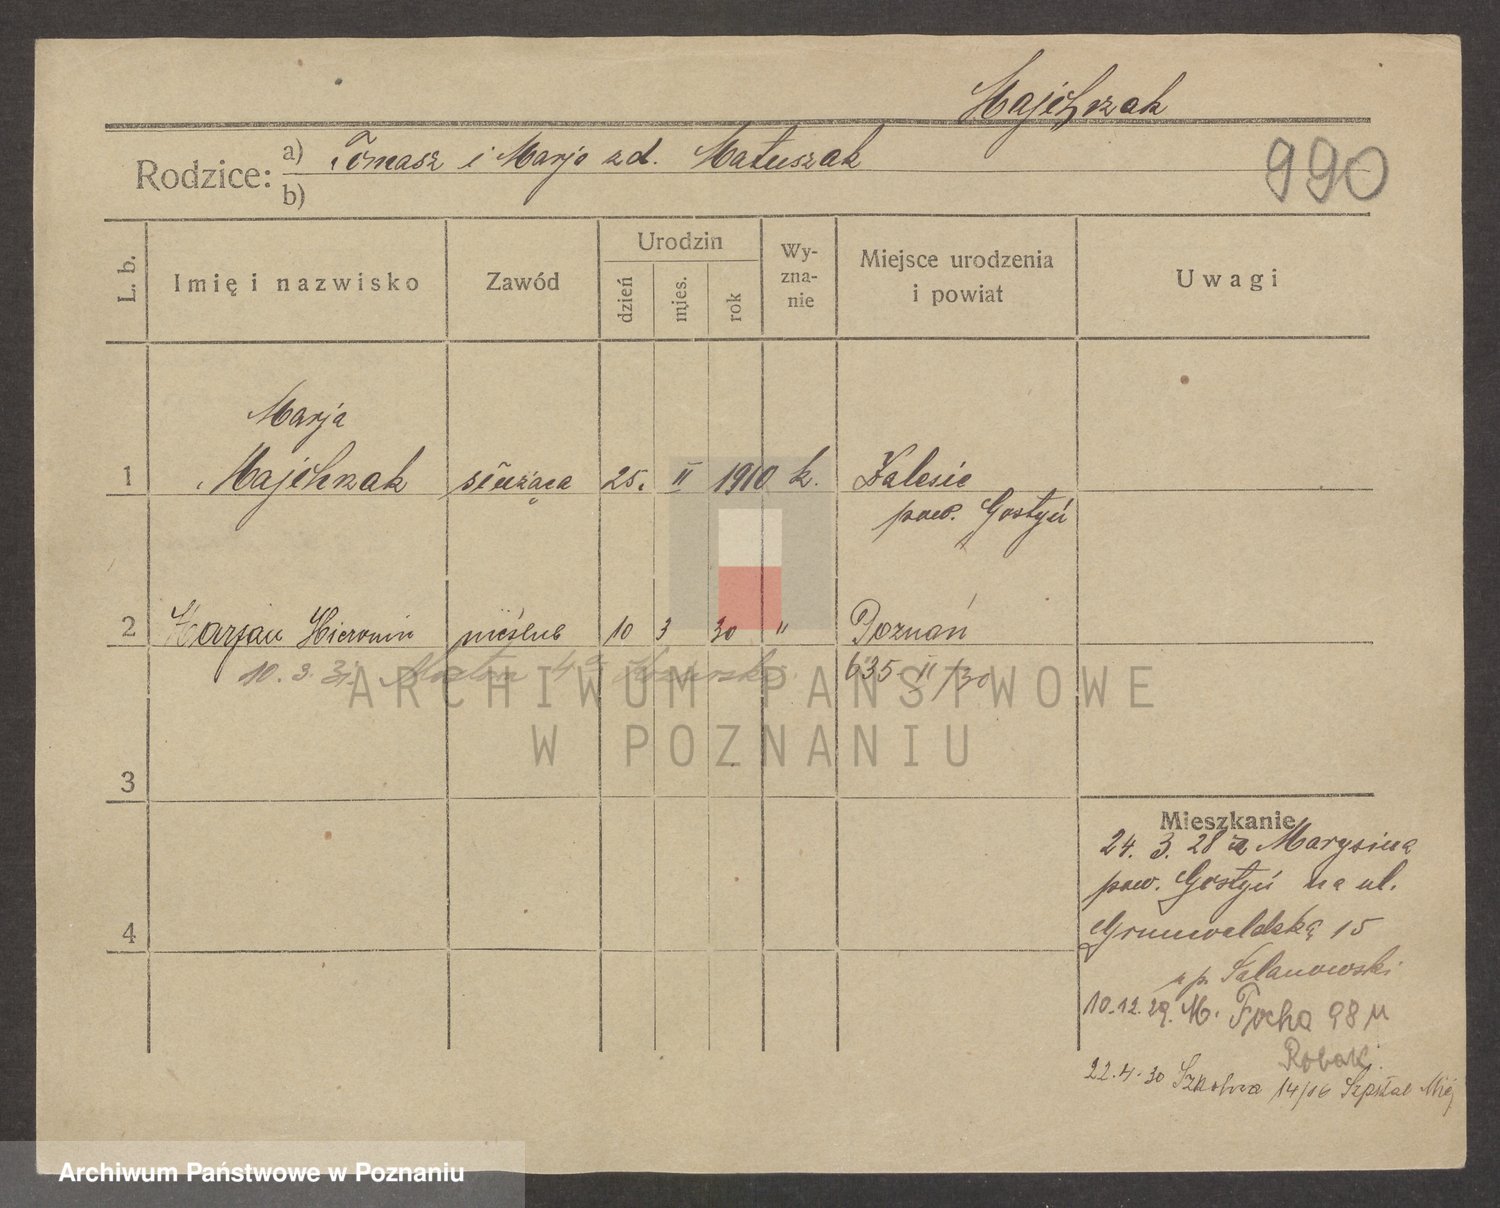 Majchrzak
Rodzice: a) Tomasz i Marja zd. Matuszak
b)
990
L. b.
Imię i nazwisko
Zawód
Urodzin
dzień
mies.
rok
Wy-
zna-
nie
Miejsce urodzenia
i powiat
Uwagi
Marja
1 Majchrzak służąca 25. II 1910 k. Zalesie
pow. Gostyń
2 Marjan Hieronim nieślub 10 3 30 " Poznań
10. 3. 31.
635 II/30
ARCHIWUM PAŃSTWOWE
W POZNANIU
3
4
Mieszkanie
24. 3. 28 z Marysina
pow. Gostyń na ul.
Grunwaldzką 15
u p.
10.12.29. M. Focha 98 u
Robak.
22.4.30 Szkolna 14/16 Szpital Miej
Archiwum Państwowe w Poznaniu